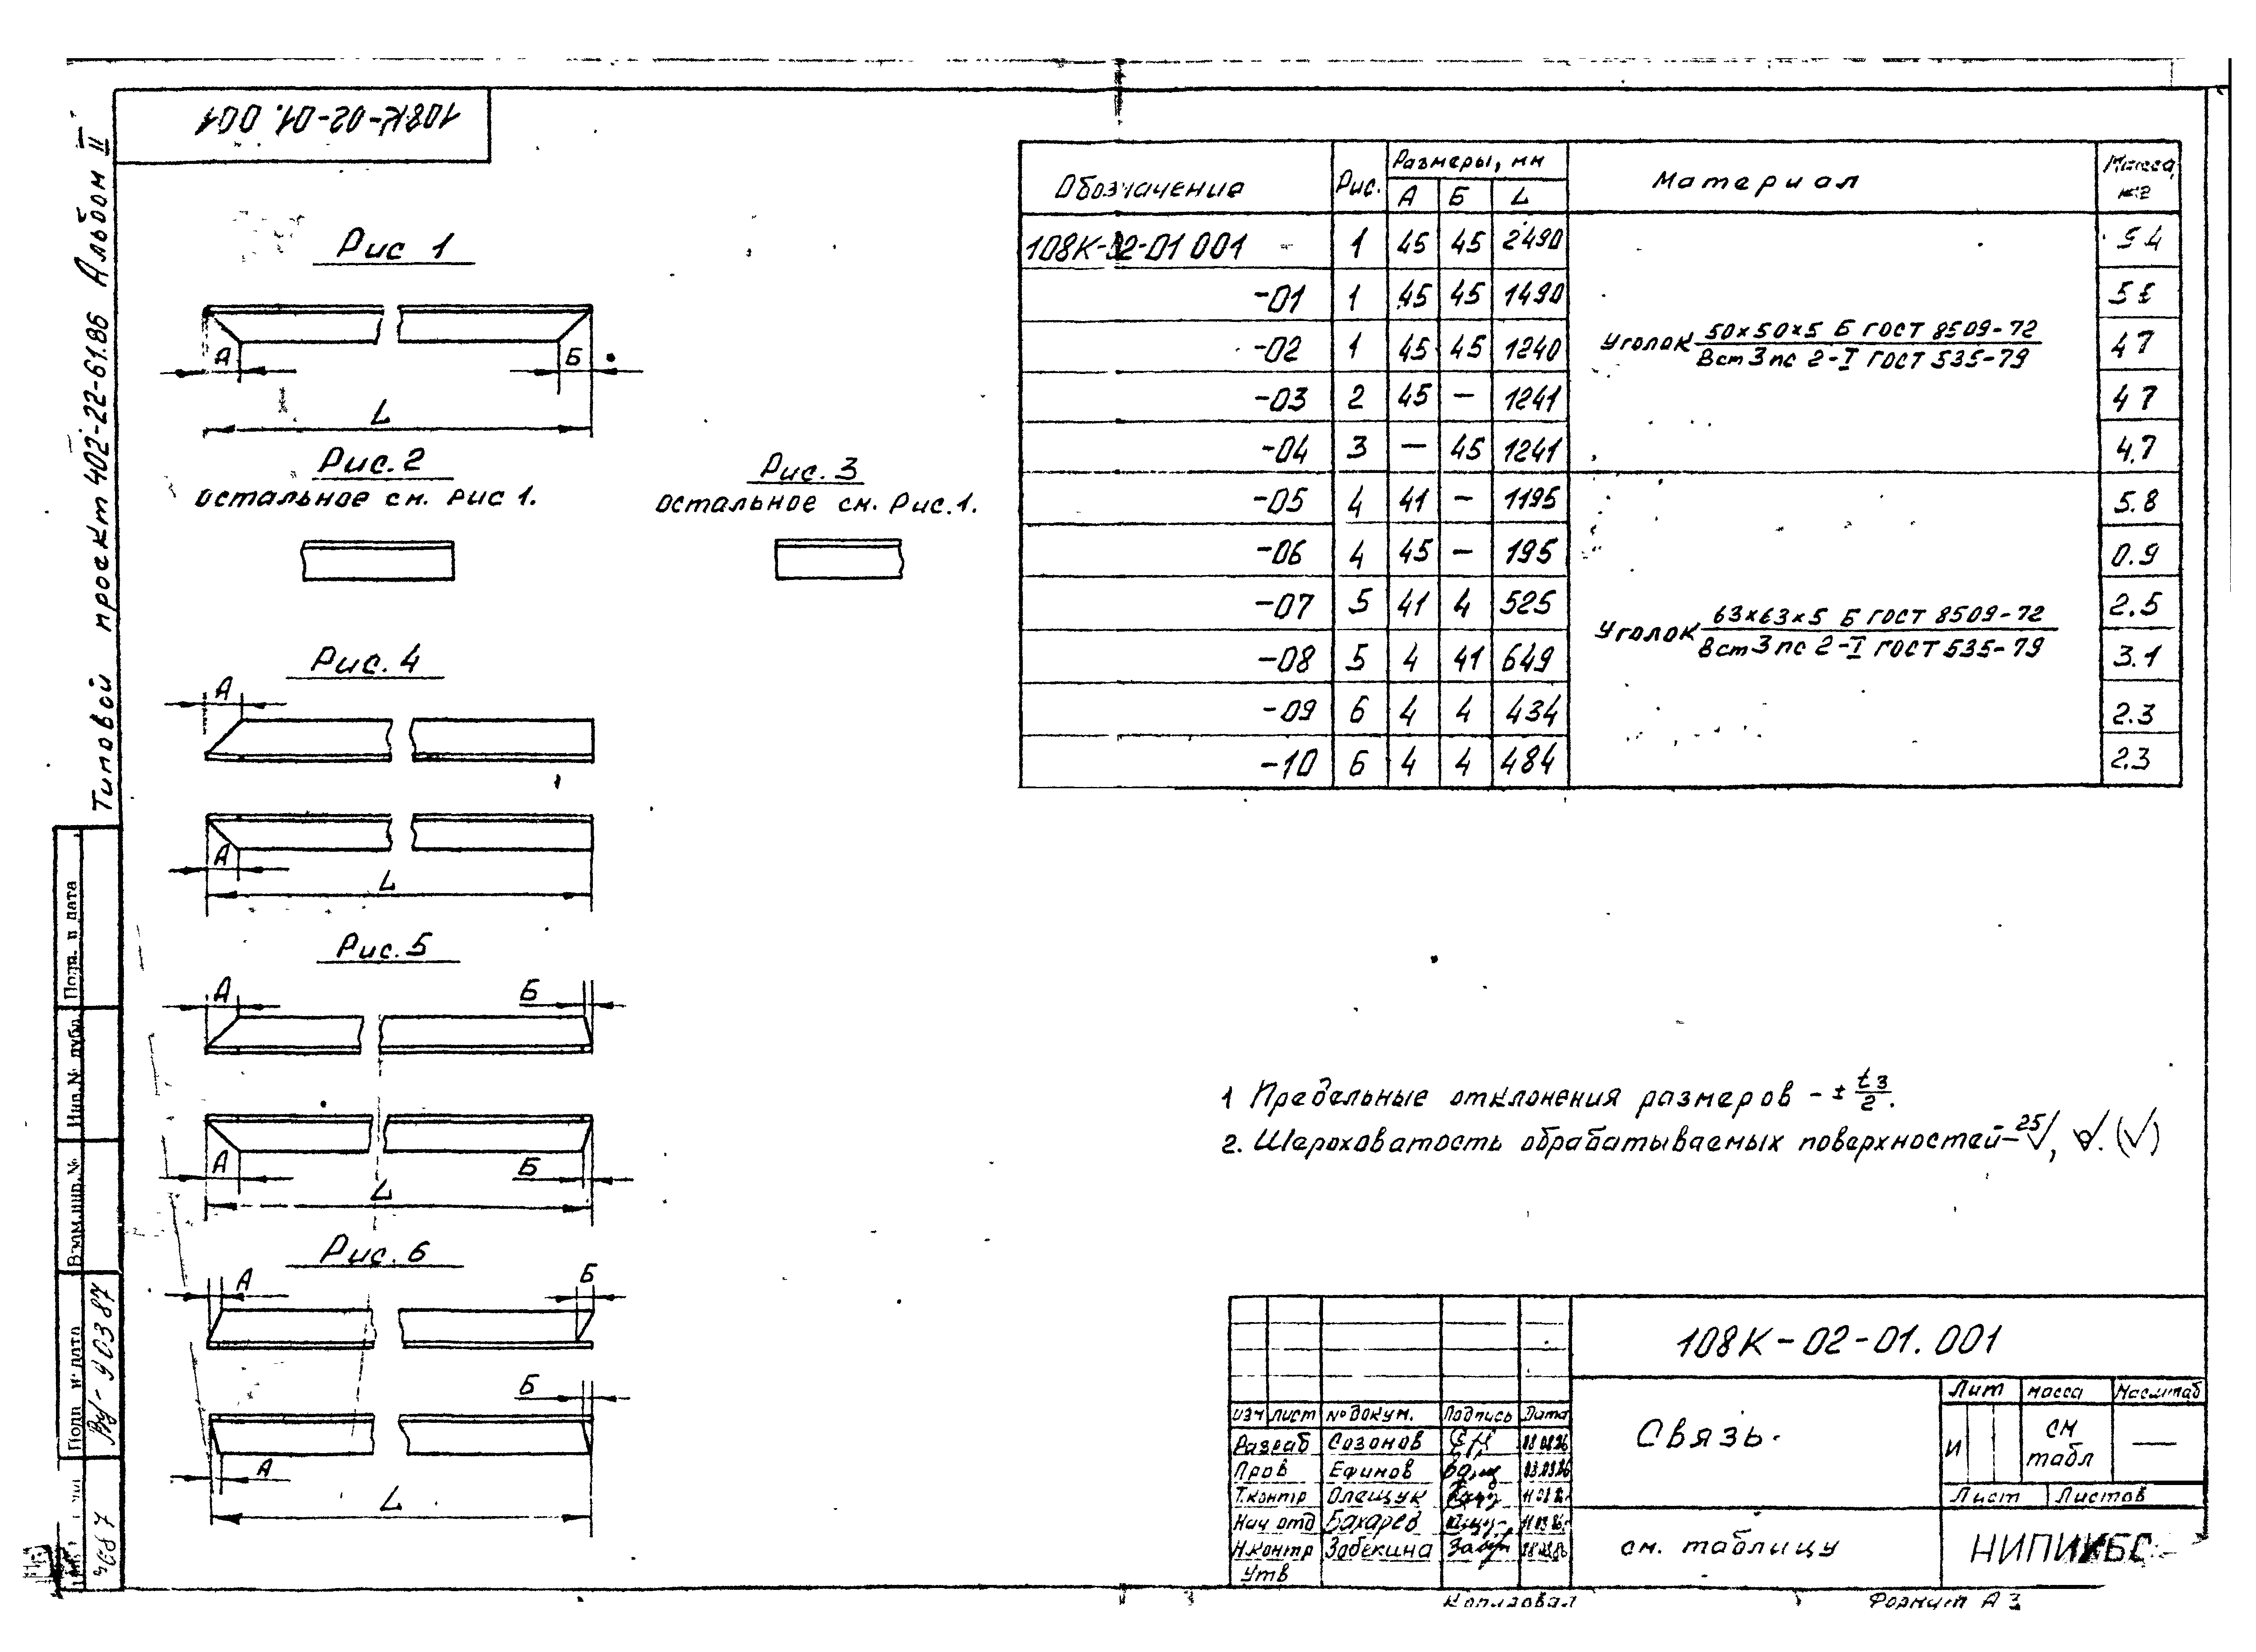 108К-02-01.001
Типовой проект 402-22-61.86 Альбом II
Рис 1
А
Б
L
Рис. 2
остальное см. Рис 1.
Рис. 3
остальное см. Рис. 1.
Рис. 4
А
А
L
Рис. 5
А Б
А Б
L
Рис. 6
А Б
Б
А
L
Обозначение Рис. Размеры, мм Материал Масса, кг
А Б L
108К-02-01 001 1 45 45 2490
-01 1 45 45 1490
-02 1 45 45 1240 47
-03 2 45 — 1241 47
-04 3 — 45 1241 4,7
Уголок 50×50×5 Б ГОСТ 8509-72
Вст3пс 2-I ГОСТ 535-79
-05 4 41 - 1195 5.8
-06 4 45 — 195 0.9
-07 5 41 4 525 2.5
-08 5 4 41 649 3.1
-09 6 4 4 434 2.3
-10 6 4 4 484 2.3
Уголок 63×63×5 Б ГОСТ 8509-72
Вст3пс 2-I ГОСТ 535-79
1 Предельные отклонения размеров - ± t3/2.
2. Шероховатость обрабатываемых поверхностей - 25√, √. (√)
108К-02-01.001
Изм лист № докум. Подпись Дата
Разраб Созонов
Пров Ефимов
Т.контр Олещук
Нач отд Бахарев
Н.контр Зобекина
Утв
Связь.
Лит масса Масштаб
И см табл —
Лист Листов
см. таблицу
НИПИ
Копировал
Формат А3
Подп. и дата
Инв.№ дубл.
Взам.инв.№
Подп и дата